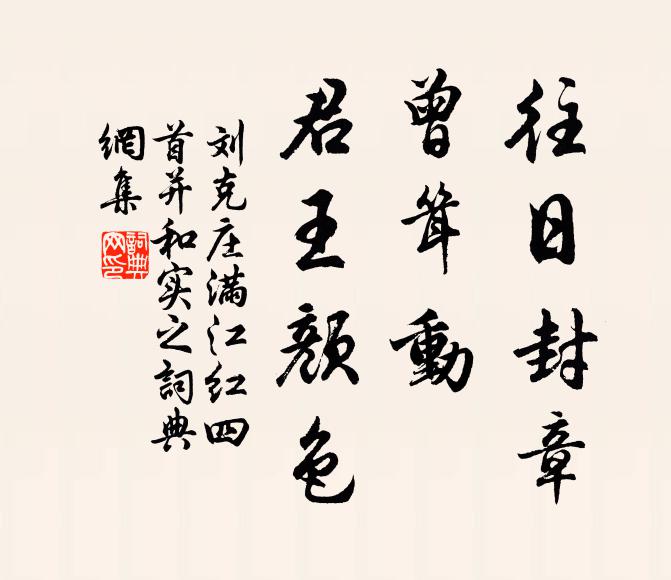 往日封章
曾耸動
君王颜色
刘克庄满江红四
首并和实之詞典
網集
詞典
网印